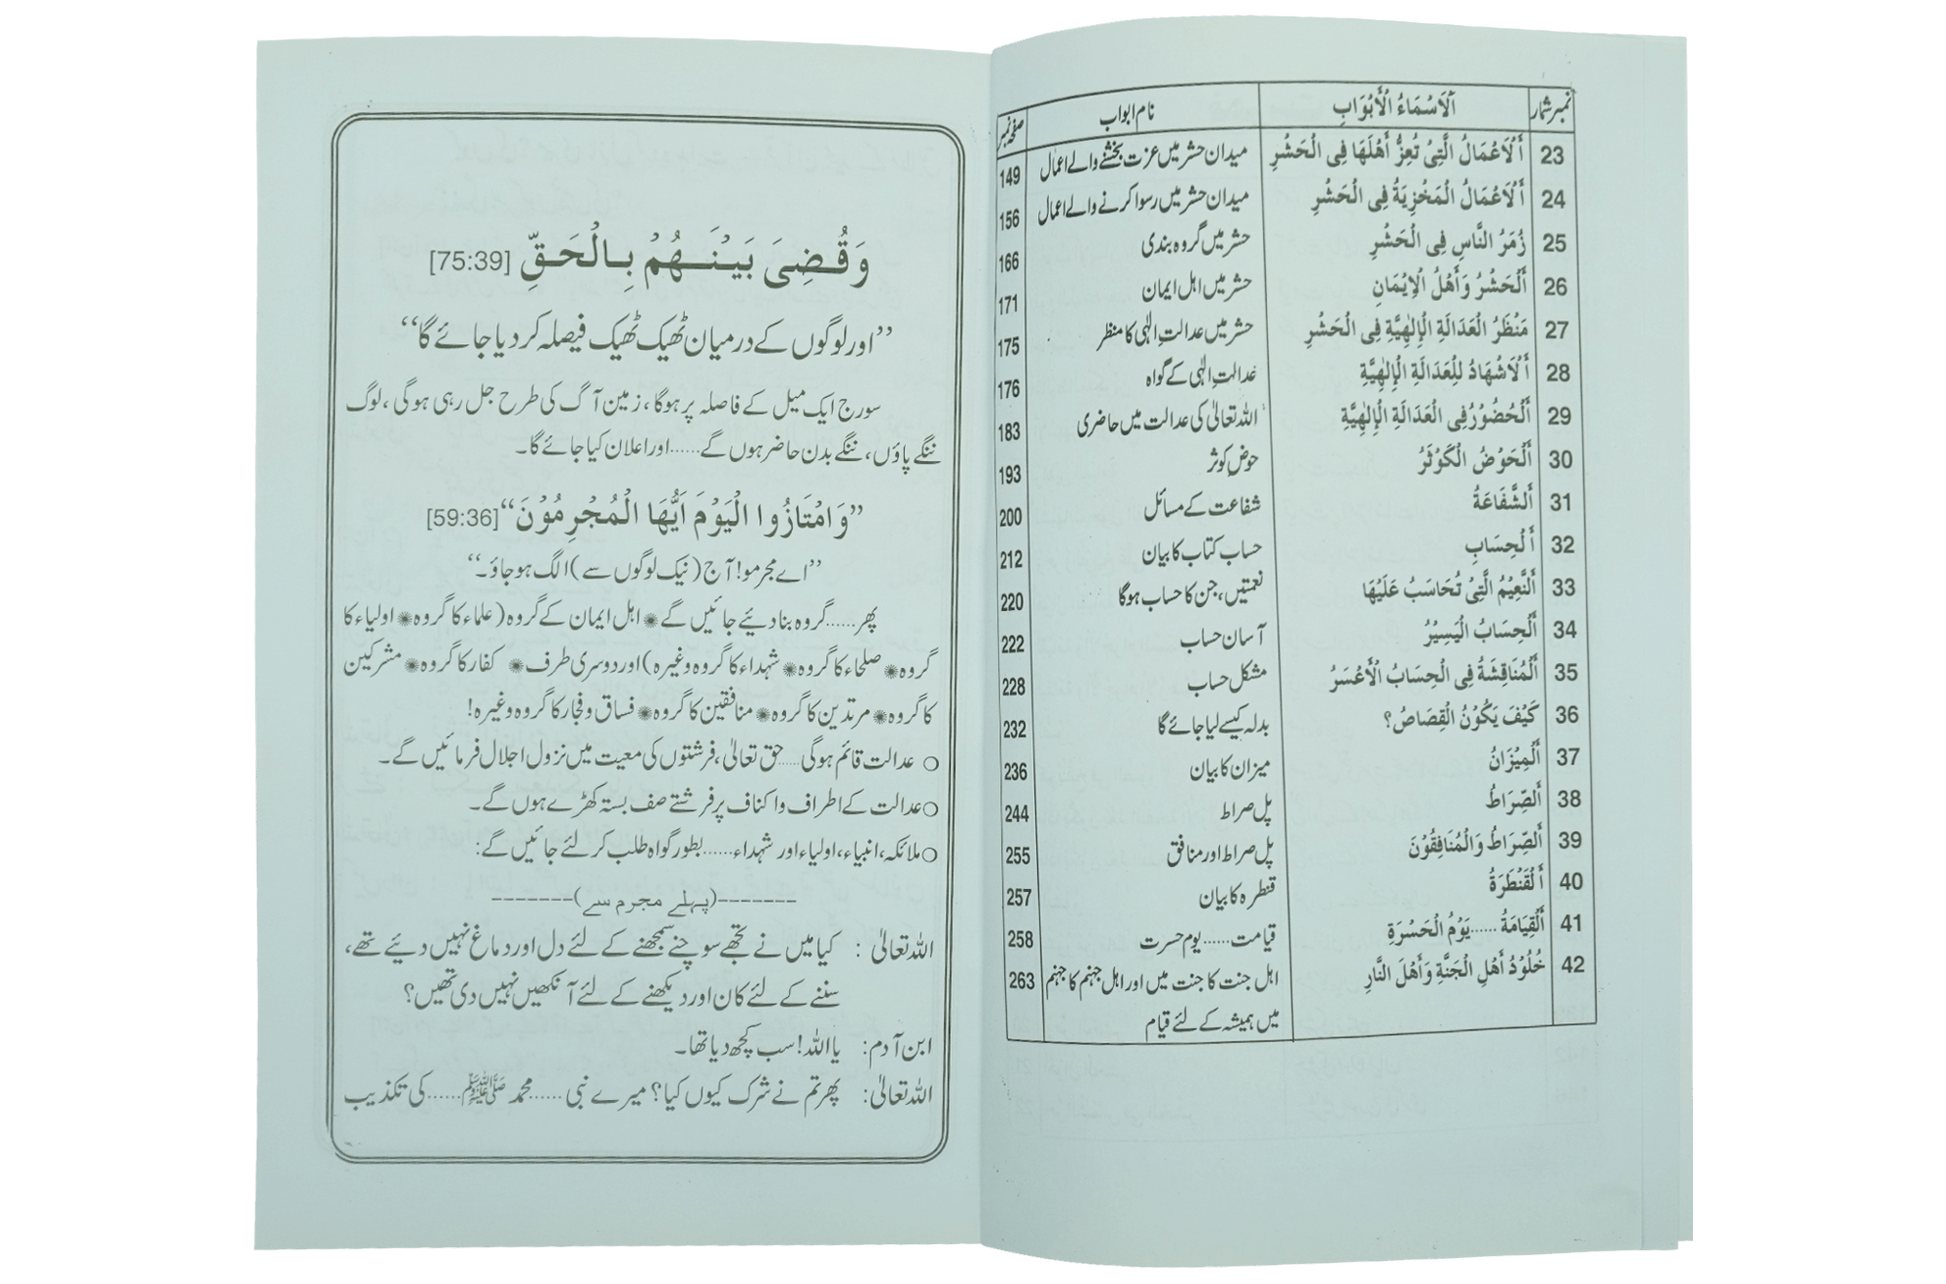 نمبر شمار اَلْاَسْمَاءُ الْأَبْوَابِ نام ابواب صفحہ نمبر
23 أَلْاَعْمَالُ الَّتِىْ تُعِزُّ أَهْلَهَا فِى الْحَشْرِ میدان حشر میں عزت بخشنے والے اعمال 149
24 أَلْاَعْمَالُ الْمَخْزِيَةُ فِى الْحَشْرِ میدان حشر میں رسوا کرنے والے اعمال 156
25 زُمَرُ النَّاسِ فِى الْحَشْرِ حشر میں گروہ بندی 166
26 أَلْحَشْرُ وَأَهْلُ الْإِيْمَانِ حشر میں اہل ایمان 171
27 مَنْظَرُ الْعَدَالَةِ الْإِلٰهِيَّةِ فِى الْحَشْرِ حشر میں عدالتِ الٰہی کا منظر 175
28 أَلْاَشْهَادُ لِلْعَدَالَةِ الْإِلٰهِيَّةِ عدالتِ الٰہی کے گواہ 176
29 أَلْحُضُوْرُفِى الْعَدَالَةِ الْإِلٰهِيَّةِ اللہ تعالیٰ کی عدالت میں حاضری 183
30 أَلْحَوْضُ الْكَوْثَرُ حوضِ کوثر 193
31 أَلشَّفَاعَةُ شفاعت کے مسائل 200
32 أَلْحِسَابِ حساب کتاب کا بیان 212
33 أَلنَّعِيْمُ الَّتِىْ تُحَاسَبُ عَلَيْهَا نعمتیں، جن کا حساب ہوگا 220
34 أَلْحِسَابُ الْيَسِيْرُ آسان حساب 222
35 أَلْمُنَاقِشَةُ فِى الْحِسَابُ الْأَعْسَرُ مشکل حساب 228
36 كَيْفَ يَكُوْنُ الْقِصَاصُ؟ بدلہ کیسے لیا جائے گا 232
37 أَلْمِيْزَانُ میزان کا بیان 236
38 أَلصِّرَاطُ پل صراط 244
39 أَلصِّرَاطُ وَالْمُنَافِقُوْنَ پل صراط اور منافق 255
40 أَلْقَنْطَرَةُ قنطرہ کا بیان 257
41 أَلْقِيَامَةُ ...... يَوْمُ الْحَسْرَةِ قیامت ...... یوم حسرت 258
42 خُلُوْدُ أَهْلِ الْجَنَّةِ وَأَهْلَ النَّارِ اہل جنت کا جنت میں اور اہل جہنم کا جہنم 263
میں ہمیشہ کے لئے قیام
وَقُضِىَ بَيْنَهُمْ بِالْحَقِّ [75:39]
’’اور لوگوں کے درمیان ٹھیک ٹھیک فیصلہ کر دیا جائے گا‘‘
سورج ایک میل کے فاصلہ پر ہوگا، زمین آگ کی طرح جل رہی ہوگی، لوگ
ننگے پاؤں، ننگے بدن حاضر ہوں گے ...... اور اعلان کیا جائے گا۔
”وَامْتَازُوا الْيَوْمَ اَيُّهَا الْمُجْرِمُوْنَ“ [59:36]
’’اے مجرمو! آج (نیک لوگوں سے) الگ ہو جاؤ۔‘‘
پھر ...... گروہ بنا دیئے جائیں گے ✺ اہل ایمان کے گروہ (علماء کا گروہ ✺ اولیاء کا
گروہ ✺ صلحاء کا گروہ ✺ شہداء کا گروہ وغیرہ) اور دوسری طرف ✺ کفار کا گروہ ✺ مشرکین
کا گروہ ✺ مرتدین کا گروہ ✺ منافقین کا گروہ ✺ فساق و فجار کا گروہ وغیرہ!
○ عدالت قائم ہوگی ...... حق تعالیٰ، فرشتوں کی معیت میں نزول اجلال فرمائیں گے۔
○ عدالت کے اطراف و اکناف پر فرشتے صف بستہ کھڑے ہوں گے۔
○ ملائکہ، انبیاء، اولیاء اور شہداء ...... بطور گواہ طلب کر لئے جائیں گے:
-------(پہلے مجرم سے)-------
اللہ تعالیٰ : کیا میں نے تجھے سوچنے سمجھنے کے لئے دل اور دماغ نہیں دیئے تھے،
سننے کے لئے کان اور دیکھنے کے لئے آنکھیں نہیں دی تھیں؟
ابن آدم: یا اللہ! سب کچھ دیا تھا۔
اللہ تعالیٰ: پھر تم نے شرک کیوں کیا؟ میرے نبی ...... محمد ﷺ ...... کی تکذیب